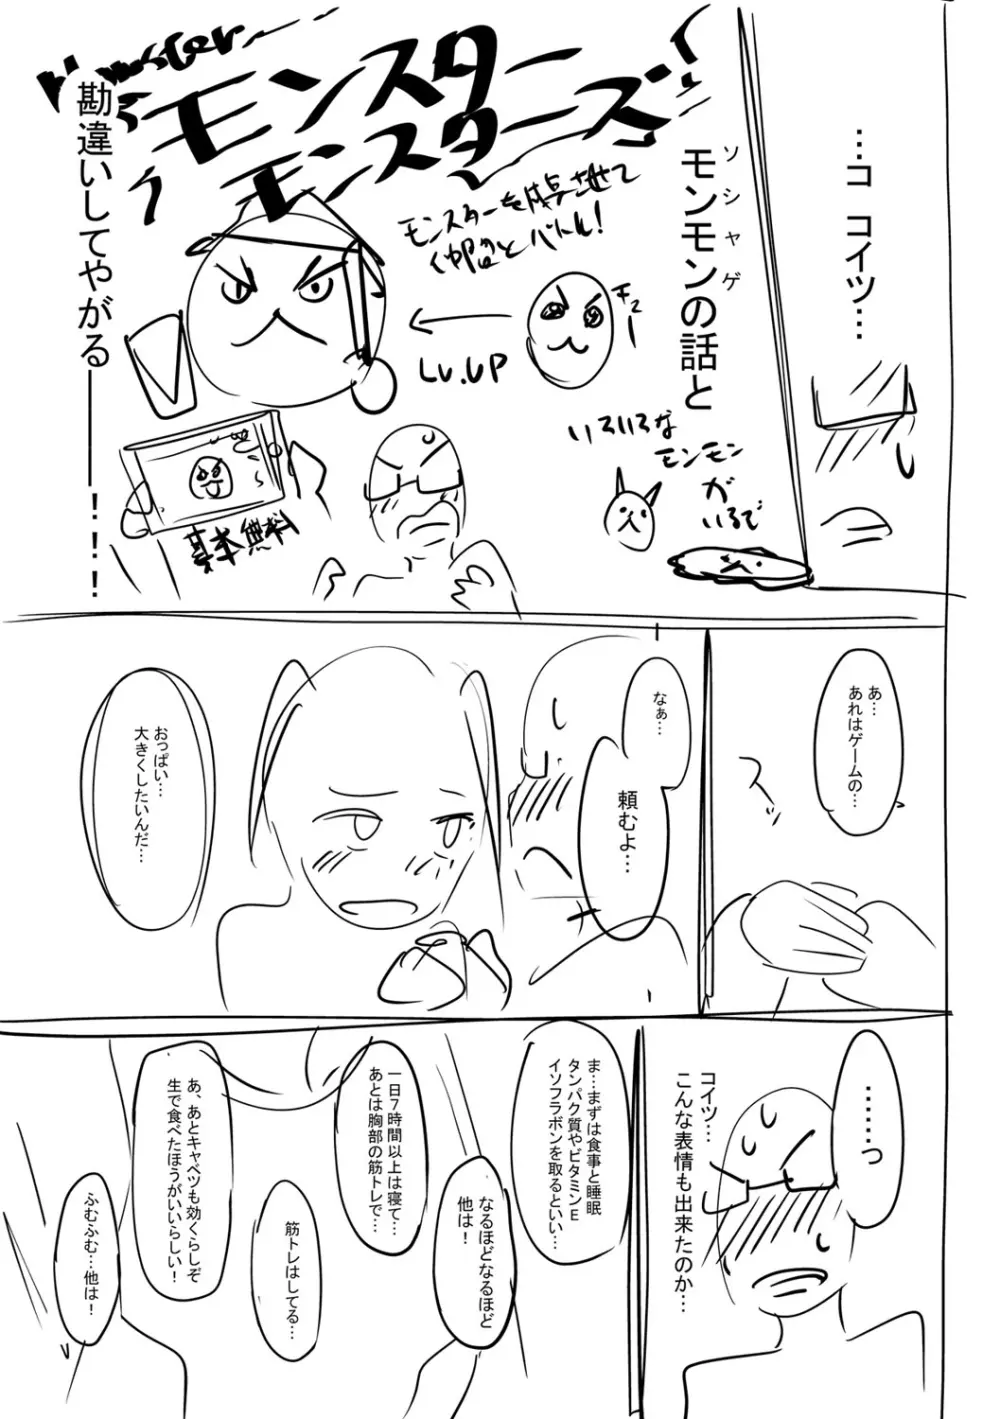 …コ コイツ…
モンモンの話と
ソシャゲ
勘違いしてやがる――――！！！
モンスター
モンスターズ！
モンスターを
仲間とバトル！
Lv.UP
いろいろな
モンモン
が
いるで
基本無料
あ…
あれはゲームの…
なぁ…
頼むよ…
おっぱい…
大きくしたいんだ…
……っ
コイツ…
こんな表情も出来たのか…
ま…まずは食事と睡眠
タンパク質やビタミンE
イソフラボンを取るといい…
なるほどなるほど
他は！
一日7時間以上は寝て…
あとは胸部の筋トレで…
筋トレはしてる…
あ、あとキャベツも効くらしぞ
生で食べたほうがいいらしい！
ふむふむ…他は！